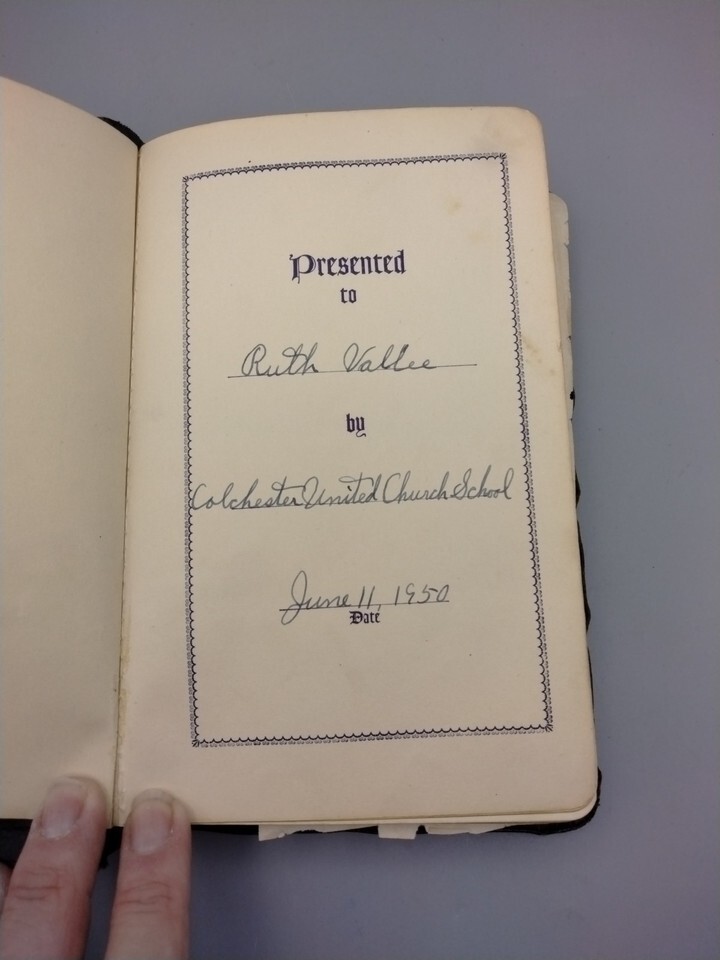 Presented
to
Ruth Vallee
by
Colchester United Church School
June 11, 1950
Date